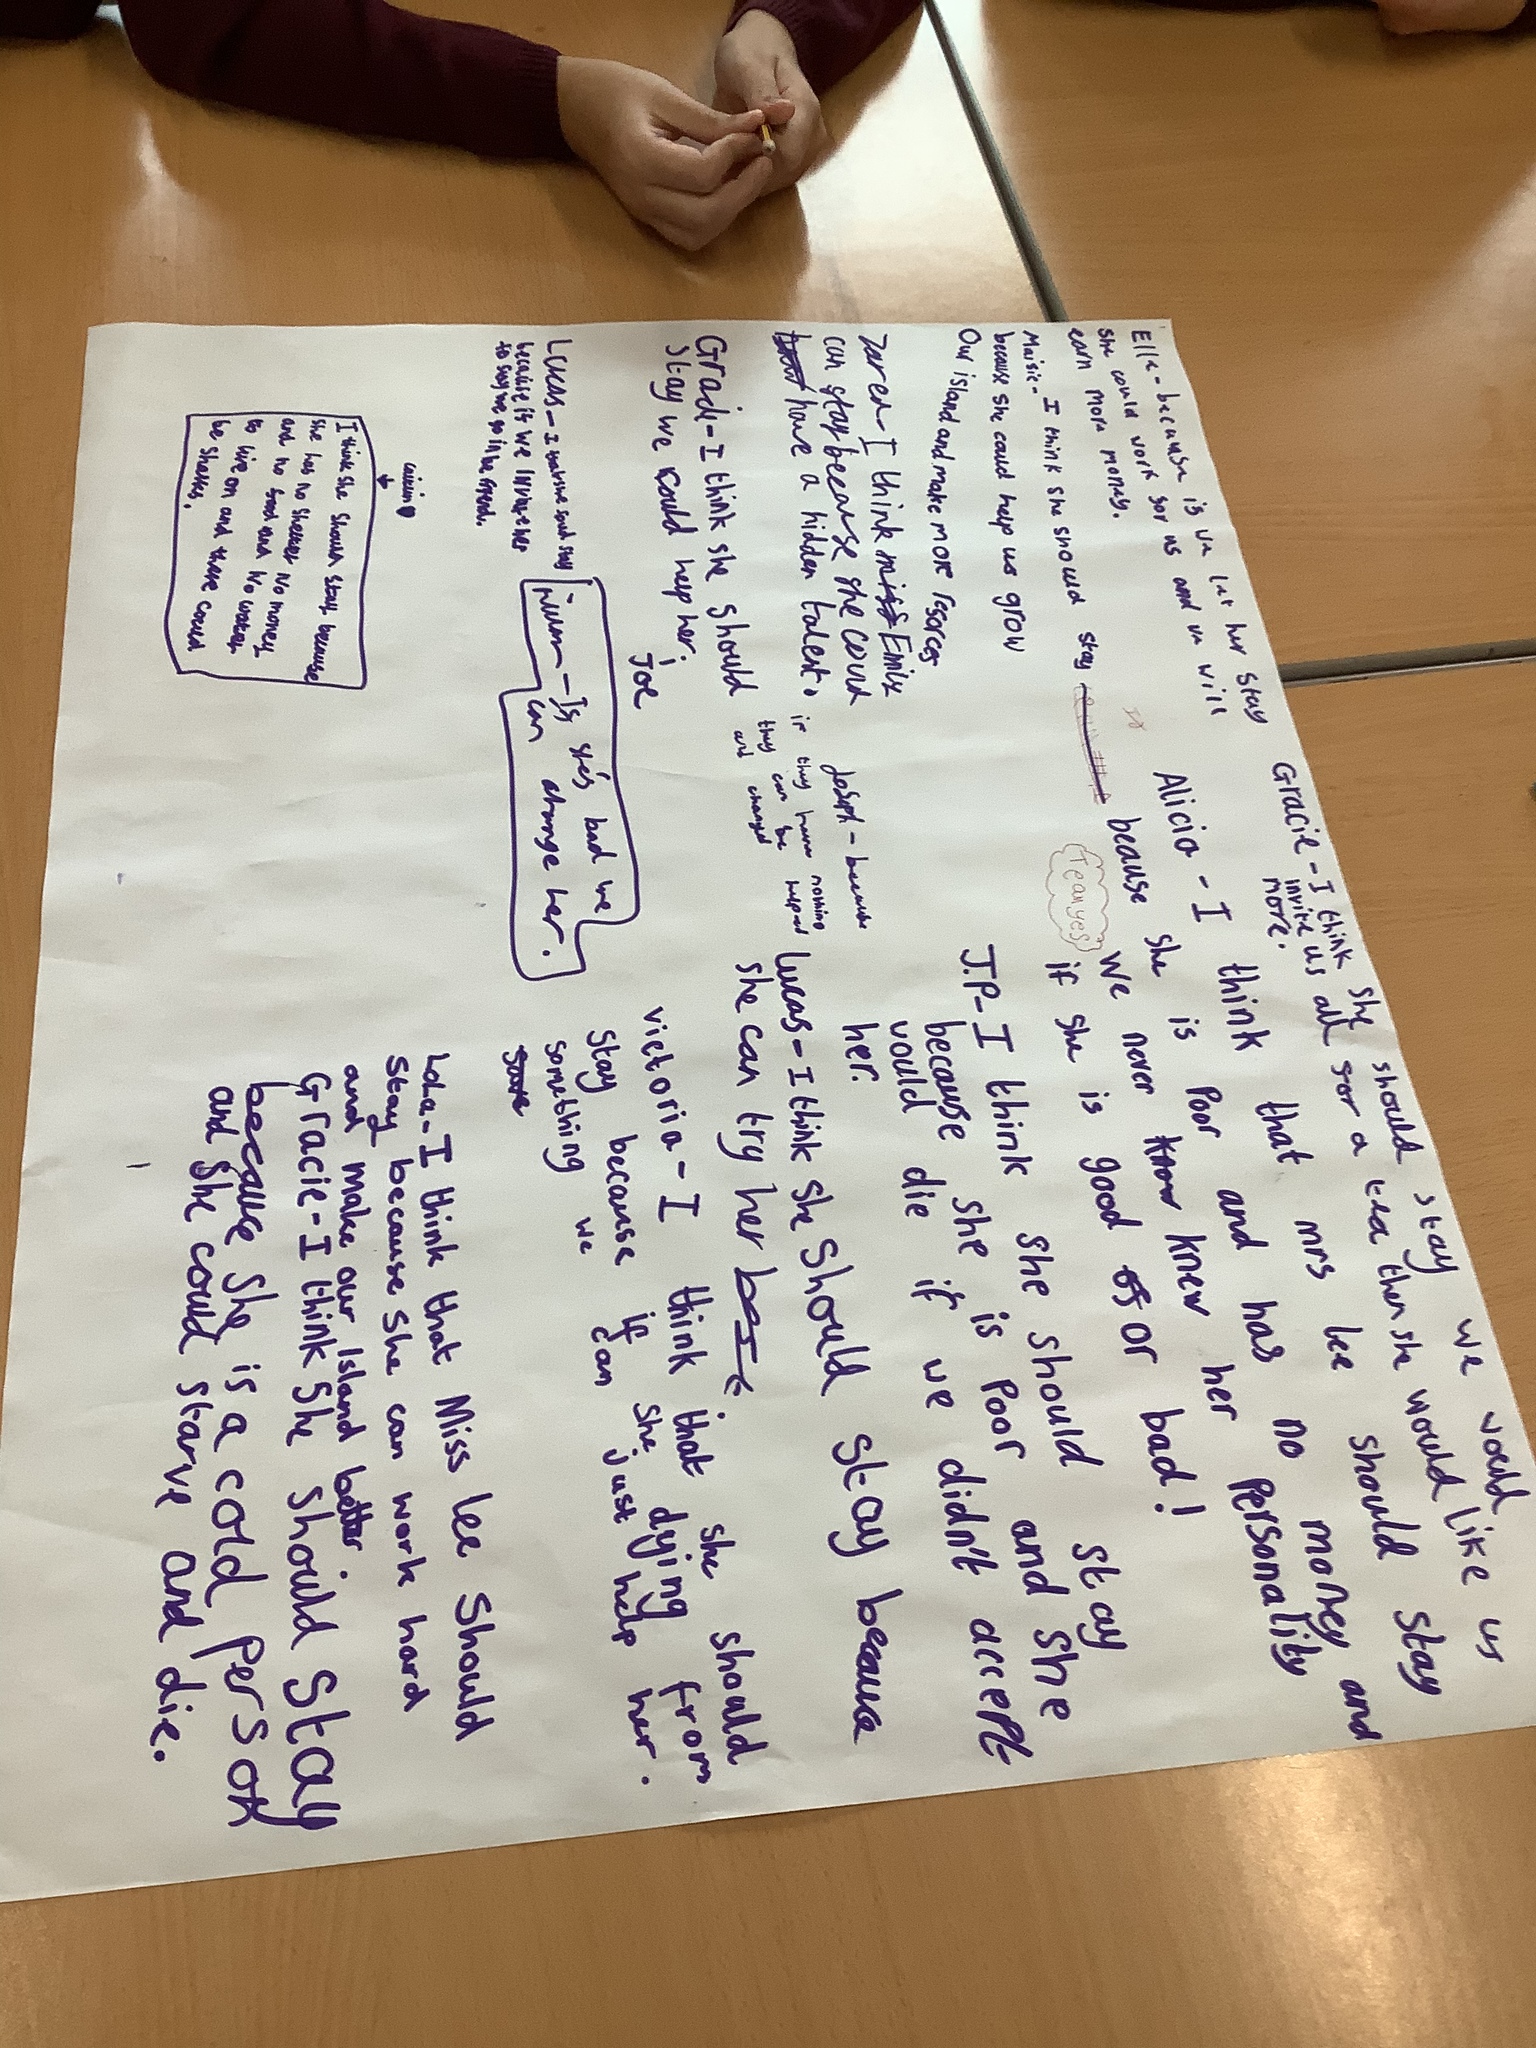 Elle - because is we let her stay
she could work for us and we will
earn more money.
Maisie - I think she should stay
because she could help us grow
Our island and make more resorces
Zaren - I think miss Emix
can stay because she could
have a hidden talent.
Gracie - I think she should
stay we could help her.
Joe
Lucas - I think we should stay
because if we invite her
to stay we go in be friend.
I think she should stay because
she has no shelter no money
and no food and no water
to live on and there could
be sharks.
If she's bad we
can change her.
Joseph - because
if they have nothing
they can be helped
and changed
Gracie - I think she should stay we would
invite us all for a tea then she would like us
more.
Alicia - I think that mrs lee should stay
beause she is Poor and has no money and
We never know knew her Personality
if she is good of or bad!
Team yes
J.P - I think she should stay
because she is Poor and she
would die if we didn't accept
her.
Lucas - I think she should stay because
she can try her best
Victoria - I think that she should
stay because if she dying from
something we can just help her.
Lola - I think that Miss Lee Should
Stay because she can work hard
and make our island better.
Gracie - I think She Should Stay
because She is a cold Person
and She could starve and die.